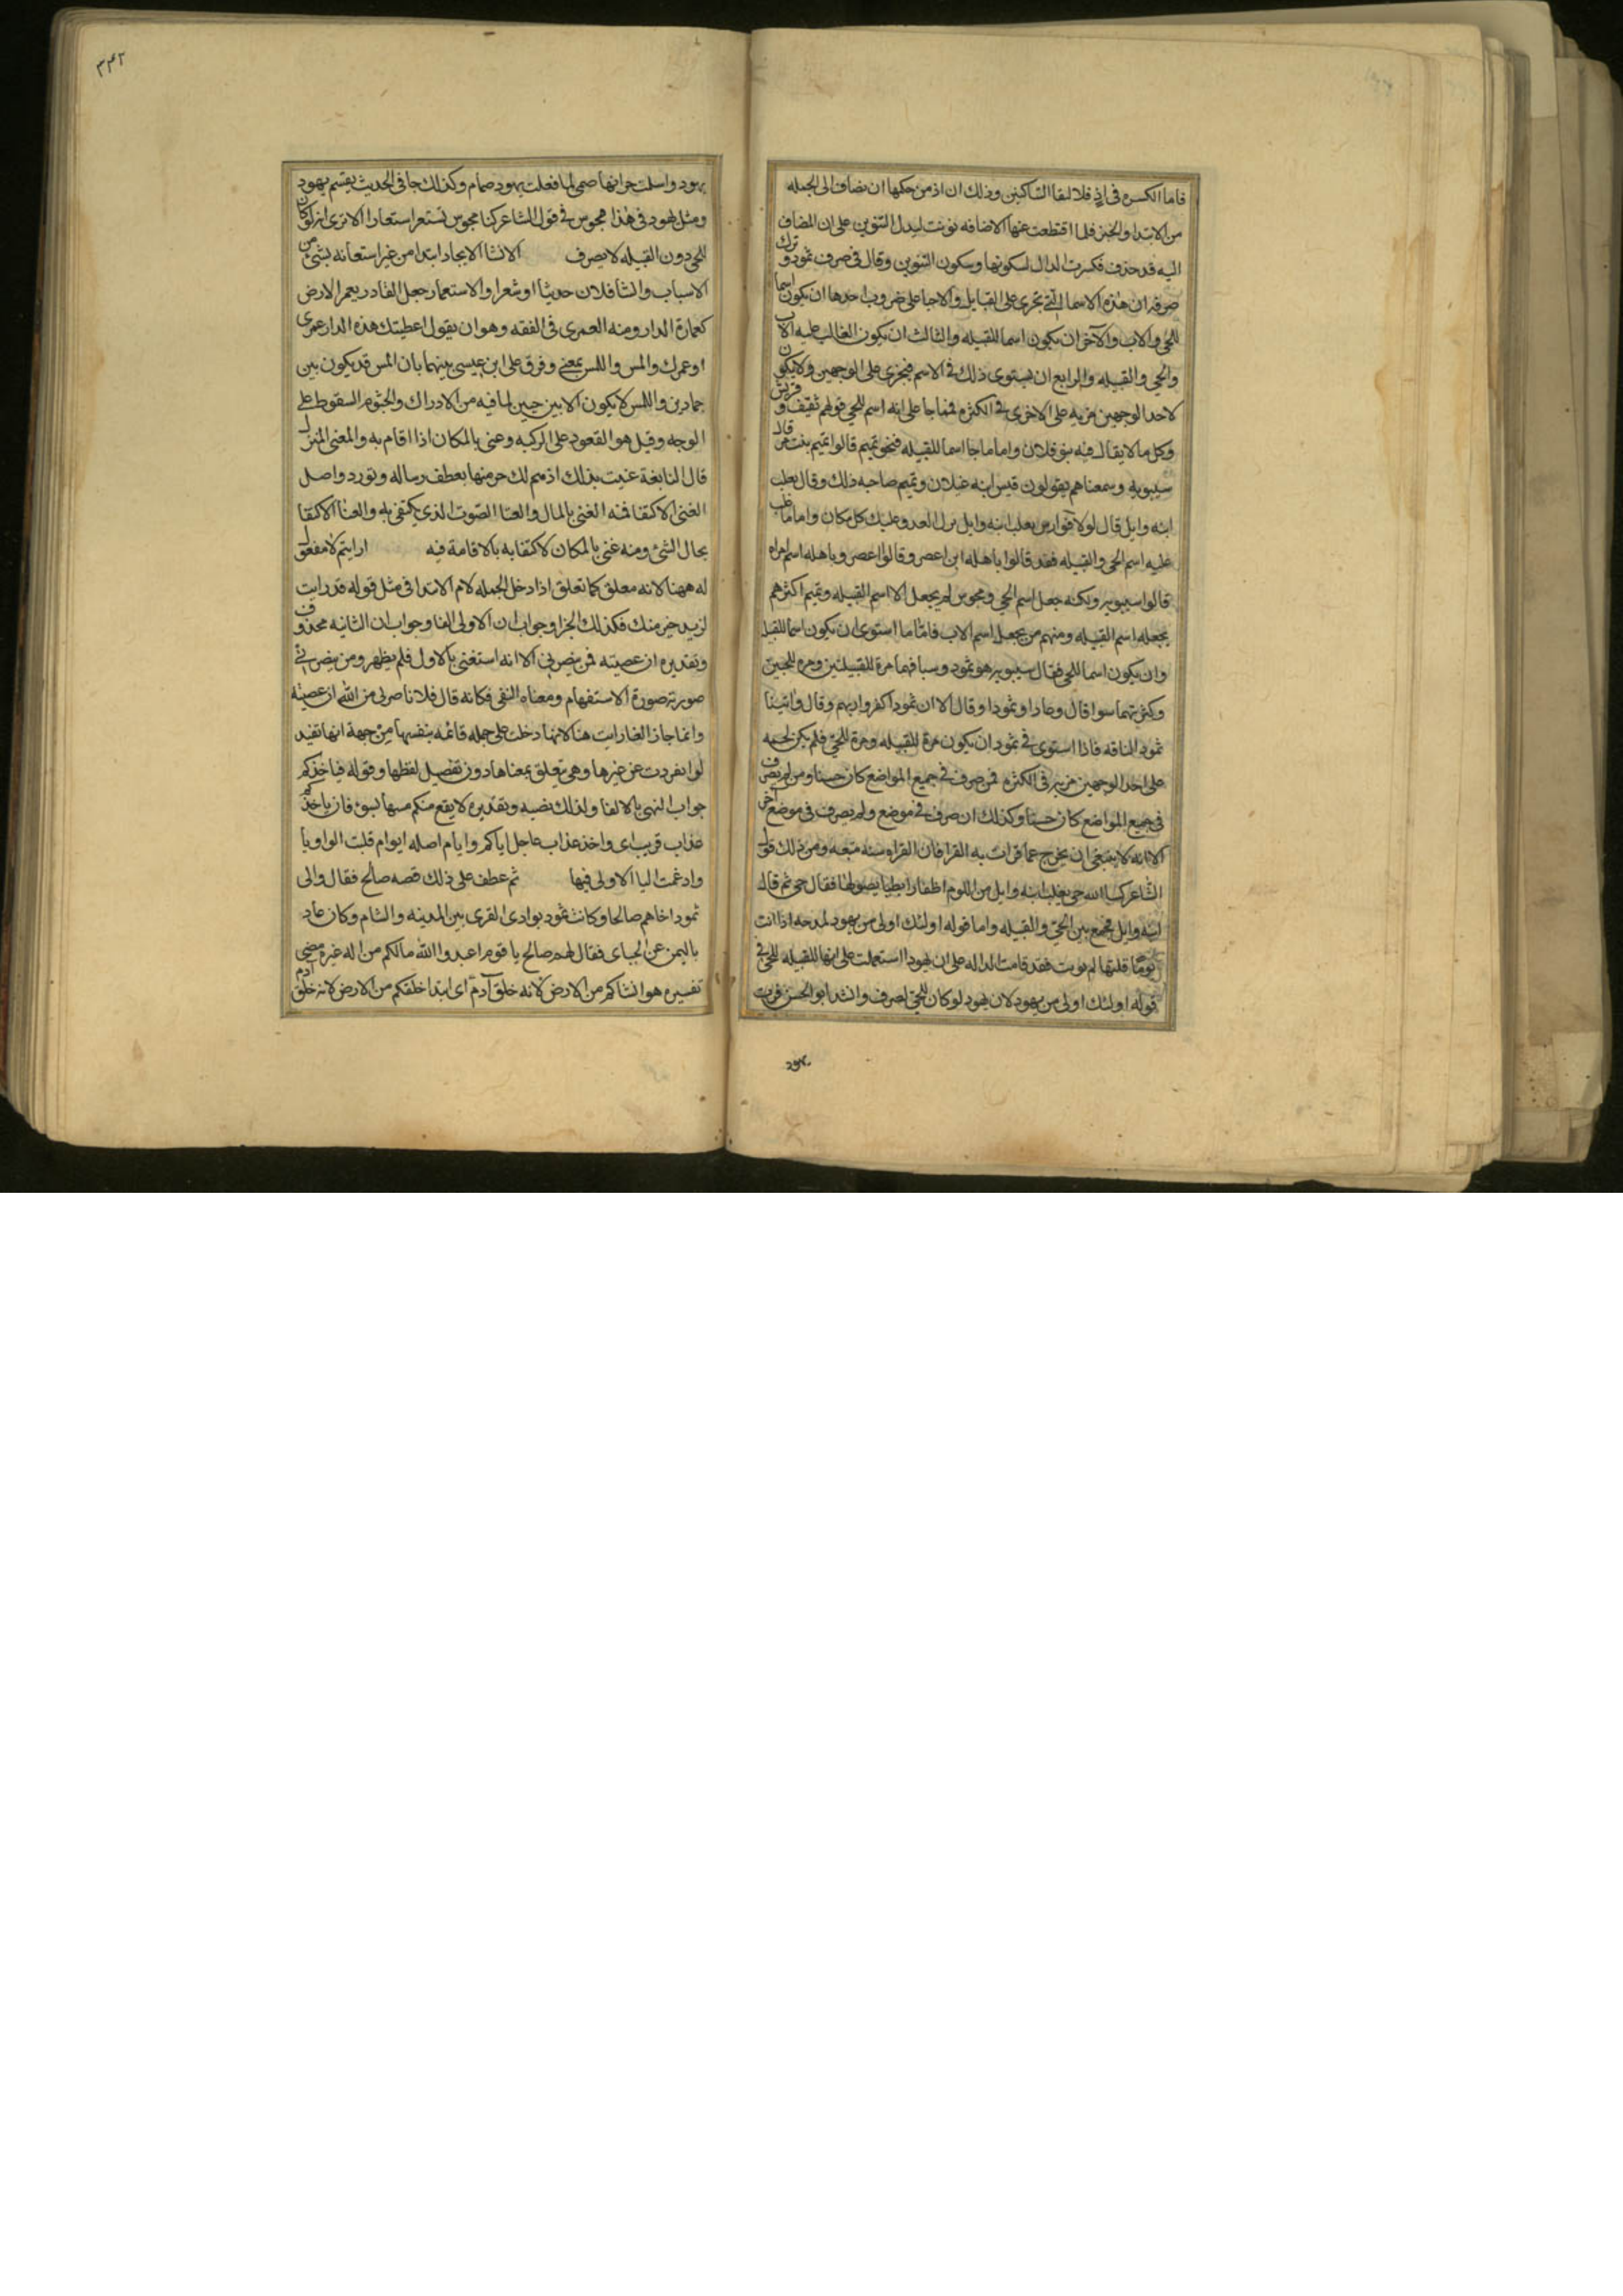 فاما الكسره في اذٍ فلالتقا الساكنين وذلك ان اذ من حكمها ان تضاف الى الجمله
من الابتدا والخبر فلما اقتطعت عنها الاضافه نونت ليدل التنوين على ان المضاف
اليه قد حذف فكسرت الدال لسكونها وسكون التنوين وقال في صرف ثمود وترك
صرفه ان هذه الاسما التي تجرى على القبايل والاحيا على ضروب احدها ان يكون اسما
للحي والاب والآخر ان يكون اسما للقبيله والثالث ان يكون الغالب عليه الاب
والحي والقبيله والرابع ان يستوى ذلك في الاسم فيجرى على الوجهين ولا يكون
لاحد الوجهين مزيه على الاخرى في الكثره فمما جا على انه اسم للحي قولهم ثقيف وقريش
وكل ما لا يقال فيه بنو فلان واما ما جا اسما للقبيله فنحو تميم قالوا تميم بنت مر قال
سيبويه وسمعناهم يقولون قيس ابنه عيلان وتميم صاحبه ذلك وقال تغلب
ابنه وايل قال لولا فوارس تغلب ابنه وايل نزل العدو عليك كل مكان واما ما غلب
عليه اسم الحي والقبيله فقد قالوا باهله ابن اعصر وقالوا اعصر وباهله اسم امراه
قالوا سيبويه ولكنه جعل اسم الحي ومجوس لم يجعل الا اسم القبيله وتميم اكثرهم
يجعله اسم القبيله ومنهم من يجعله اسم الاب فامّا ما استوى ان يكون اسما للقبيله
وان يكون اسما للحي فقال سيبويه هو ثمود وسبا فهما مرة للقبيلتين ومره للحيين
وكثرتهما سوا قال وعادا وثمودا وقال الا ان ثمودا كفروا ربهم وقال واتينا
ثمود الناقه فاذا استوى في ثمود ان يكون مرة للقبيله ومرة للحيّ فلم يكن لحمله
على احد الوجهين مزيه في الكثره فمن صرف في جميع المواضع كان حسنا ومن لم يصرف
في جميع المواضع كان حسنا وكذلك ان صرف في موضع ولم يصرف في موضع آخر
الا انه لا ينبغي ان يخرج عما قرات به القرا فان القراه سنه متبعه ومن ذلك قول
الشاعر كسا الله حي تغلب ابنه وايل من اللوم اظفارا بطيا نصولها فقال حي ثم قال
ابنه وايل فجمع بين الحيّ والقبيله واما قوله اولئك اولى من يهود بمدحه اذا انت
يومًا قلتها لم تونب فقد قامت الدلاله على ان يهودا استعملت على انها للقبيله للحيّ في
قوله اولئك اولى من يهود لان يهود لو كان للحيّ لصرف وانشد ابو الحسن فرت
يهود
٣٤٢
يهود واسلمت جرانها صمى لما فعلت يهود صمام وكذلك جا في الحديث تقسم يهود
ومثل يهود في هذا مجوس في قول الشاعر كنا مجوس تستعر استعارا الا ترى انه لو كان
للحي دون القبيله لا نصرف الانشا الايجاد ابتدا من غير استعانه بشئ من
الاسباب وانشا فلان حديثا او شعرا والاستعمار جعل القادر يعمر الارض
كعمارة الدار ومنه العمرى في الفقه وهو ان يقول اعطيتك هذه الدار عمرى
او عمرك والمس واللمس بمعنى وفرق على ابن عيسى بينهما بان المس قد يكون بين
جمادين واللمس لا يكون الا بين حيين لما فيه من الادراك والجثوم السقوط على
الوجه وقيل هو القعود على الركبه وغنى بالمكان اذا اقام به والمغنى المنزل
قال النابغة غنيت بذلك اذ هم لك جيرة منها بعطف رساله وتودد واصل
الغنى الاكتفا فمنه الغنى بالمال والغنا الصّوت الذي يكتفى به والغنا الاكتفا
بحال الشئ ومنه غنى بالمكان لاكتفايه بالاقامة فيه ارايتم لا مفعول
له ههنا لانه معلق كما تعلق اذا دخل الجمله لام الابتدا في مثل قوله قد رايت
لزيد خير منك فكذلك الجزا وجواب ان الاولى الفا وجواب ان الثانيه محذوف
وتقديره ان عصيته فمن ينصرني الا انه استغنى بالاول فلم يظهر ومن ينصرني
صورته صورة الاستفهام ومعناه النفي فكانه قال فلا ناصر لى من الله ان عصيته
وانما جاز الغا رايت هنا لانها دخلت على جمله قائمه بنفسها من جهة انها تفيد
لو انفردت عن غيرها وهى تتعلق بمعناها دون تفصيل لفظها وقوله فياخذكم
جواب النهى بالفا ولذلك نصبه وتقديره لا يقع منكم مسها بسوء فان ياخذكم
عذاب قريب اى واخذ عذاب عاجل اياكم وايام اصله ايوام قلبت الواو يا
وادغمت اليا الاولى فيها ثم عطف على ذلك قصه صالح فقال والى
ثمود اخاهم صالحا وكانت ثمود بوادى القرى بين المدينه والشام وكان عاد
باليمن عن الجباى فقال لهم صالح يا قوم اعبدوا الله مالكم من اله غيره مضى
تفسيره هو انشاكم من الارض لانه خلق آدم اى ابتدا خلقكم من الارض لانه خلق آدم